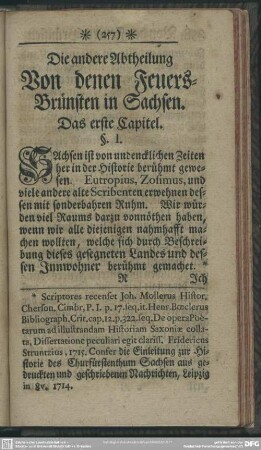 * (257) *
Die andere Abtheilung
Von denen Feuers-
Brünsten in Sachsen.
Das erste Capitel.
§. I.
SAchsen ist von undencklichen Zeiten
her in der Historie berühmt gewe-
sen. Eutropius, Zosimus, und
viele andere alte Scribenten erwehnen des-
sen mit sonderbahren Ruhm. Wir wür-
den viel Raums darzu vonnöthen haben,
wenn wir alle diejenigen nahmhafft ma-
chen wollten, welche sich durch Beschrei-
bung dieses gesegneten Landes und des-
sen Innwohner berühmt gemachet. *
R Ich
* Scriptores recenset Joh. Mollerus Histor.
Cherson. Cimbr. P. I. p. 17. seq. it. Henr. Bœclerus
Bibliograph. Crit. cap. 12. p. 322. seq. De opera Poë-
tarum ad illustrandam Historiam Saxoniæ colla-
ta, Dissertatione peculiari egit clariss. Fridericus
Strunzius, 1715. Confer die Einleitung zur Hi-
storie des Churfürstenthum Sachsen aus ge-
druckten und geschriebenen Nachrichten, Leipzig
in 8v. 1714.